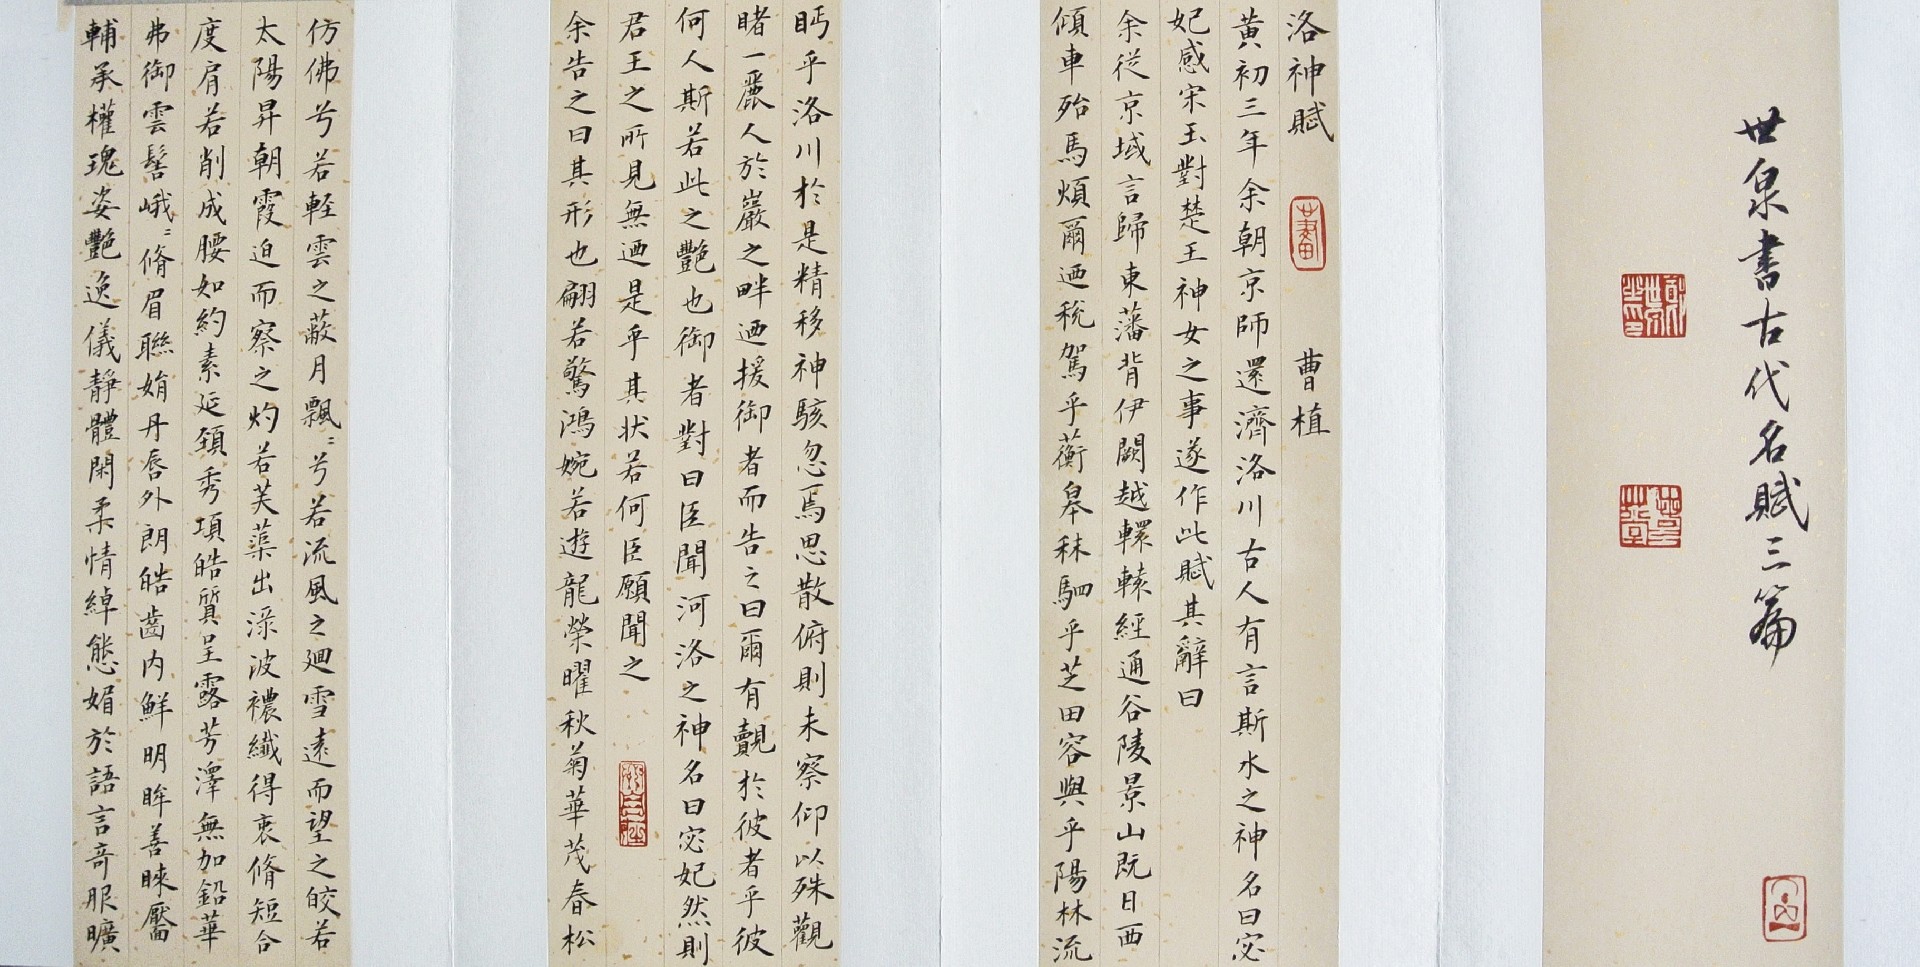 世泉書古代名賦三篇
洛神賦 曹植
黃初三年余朝京師還濟洛川古人有言斯水之神名曰宓
妃感宋玉對楚王神女之事遂作此賦其辭曰
余従京域言歸東藩背伊闕越轘轅經通谷陵景山既日西
傾車殆馬煩爾迺稅駕乎蘅皋秣駟乎芝田容與乎陽林流
眄乎洛川於是精移神駭忽焉思散俯則未察仰以殊觀
睹一麗人於巖之畔迺援御者而告之曰爾有覿於彼者乎彼
何人斯若此之艷也御者對曰臣聞河洛之神名曰宓妃然則
君王之所見無迺是乎其状若何臣願聞之
余告之曰其形也翩若驚鴻婉若遊龍榮曜秋菊華茂春松
仿佛兮若輕雲之蔽月飄〻兮若流風之廻雪遠而望之皎若
太陽昇朝霞迫而察之灼若芙蕖出淥波襛纖得衷脩短合
度肩若削成腰如約素延頸秀項皓質呈露芳澤無加鉛華
弗御雲髻峨〻脩眉聯娟丹唇外朗皓齒内鮮明眸善睞靨
輔承權瑰姿艷逸儀靜體閑柔情綽態媚於語言奇服曠